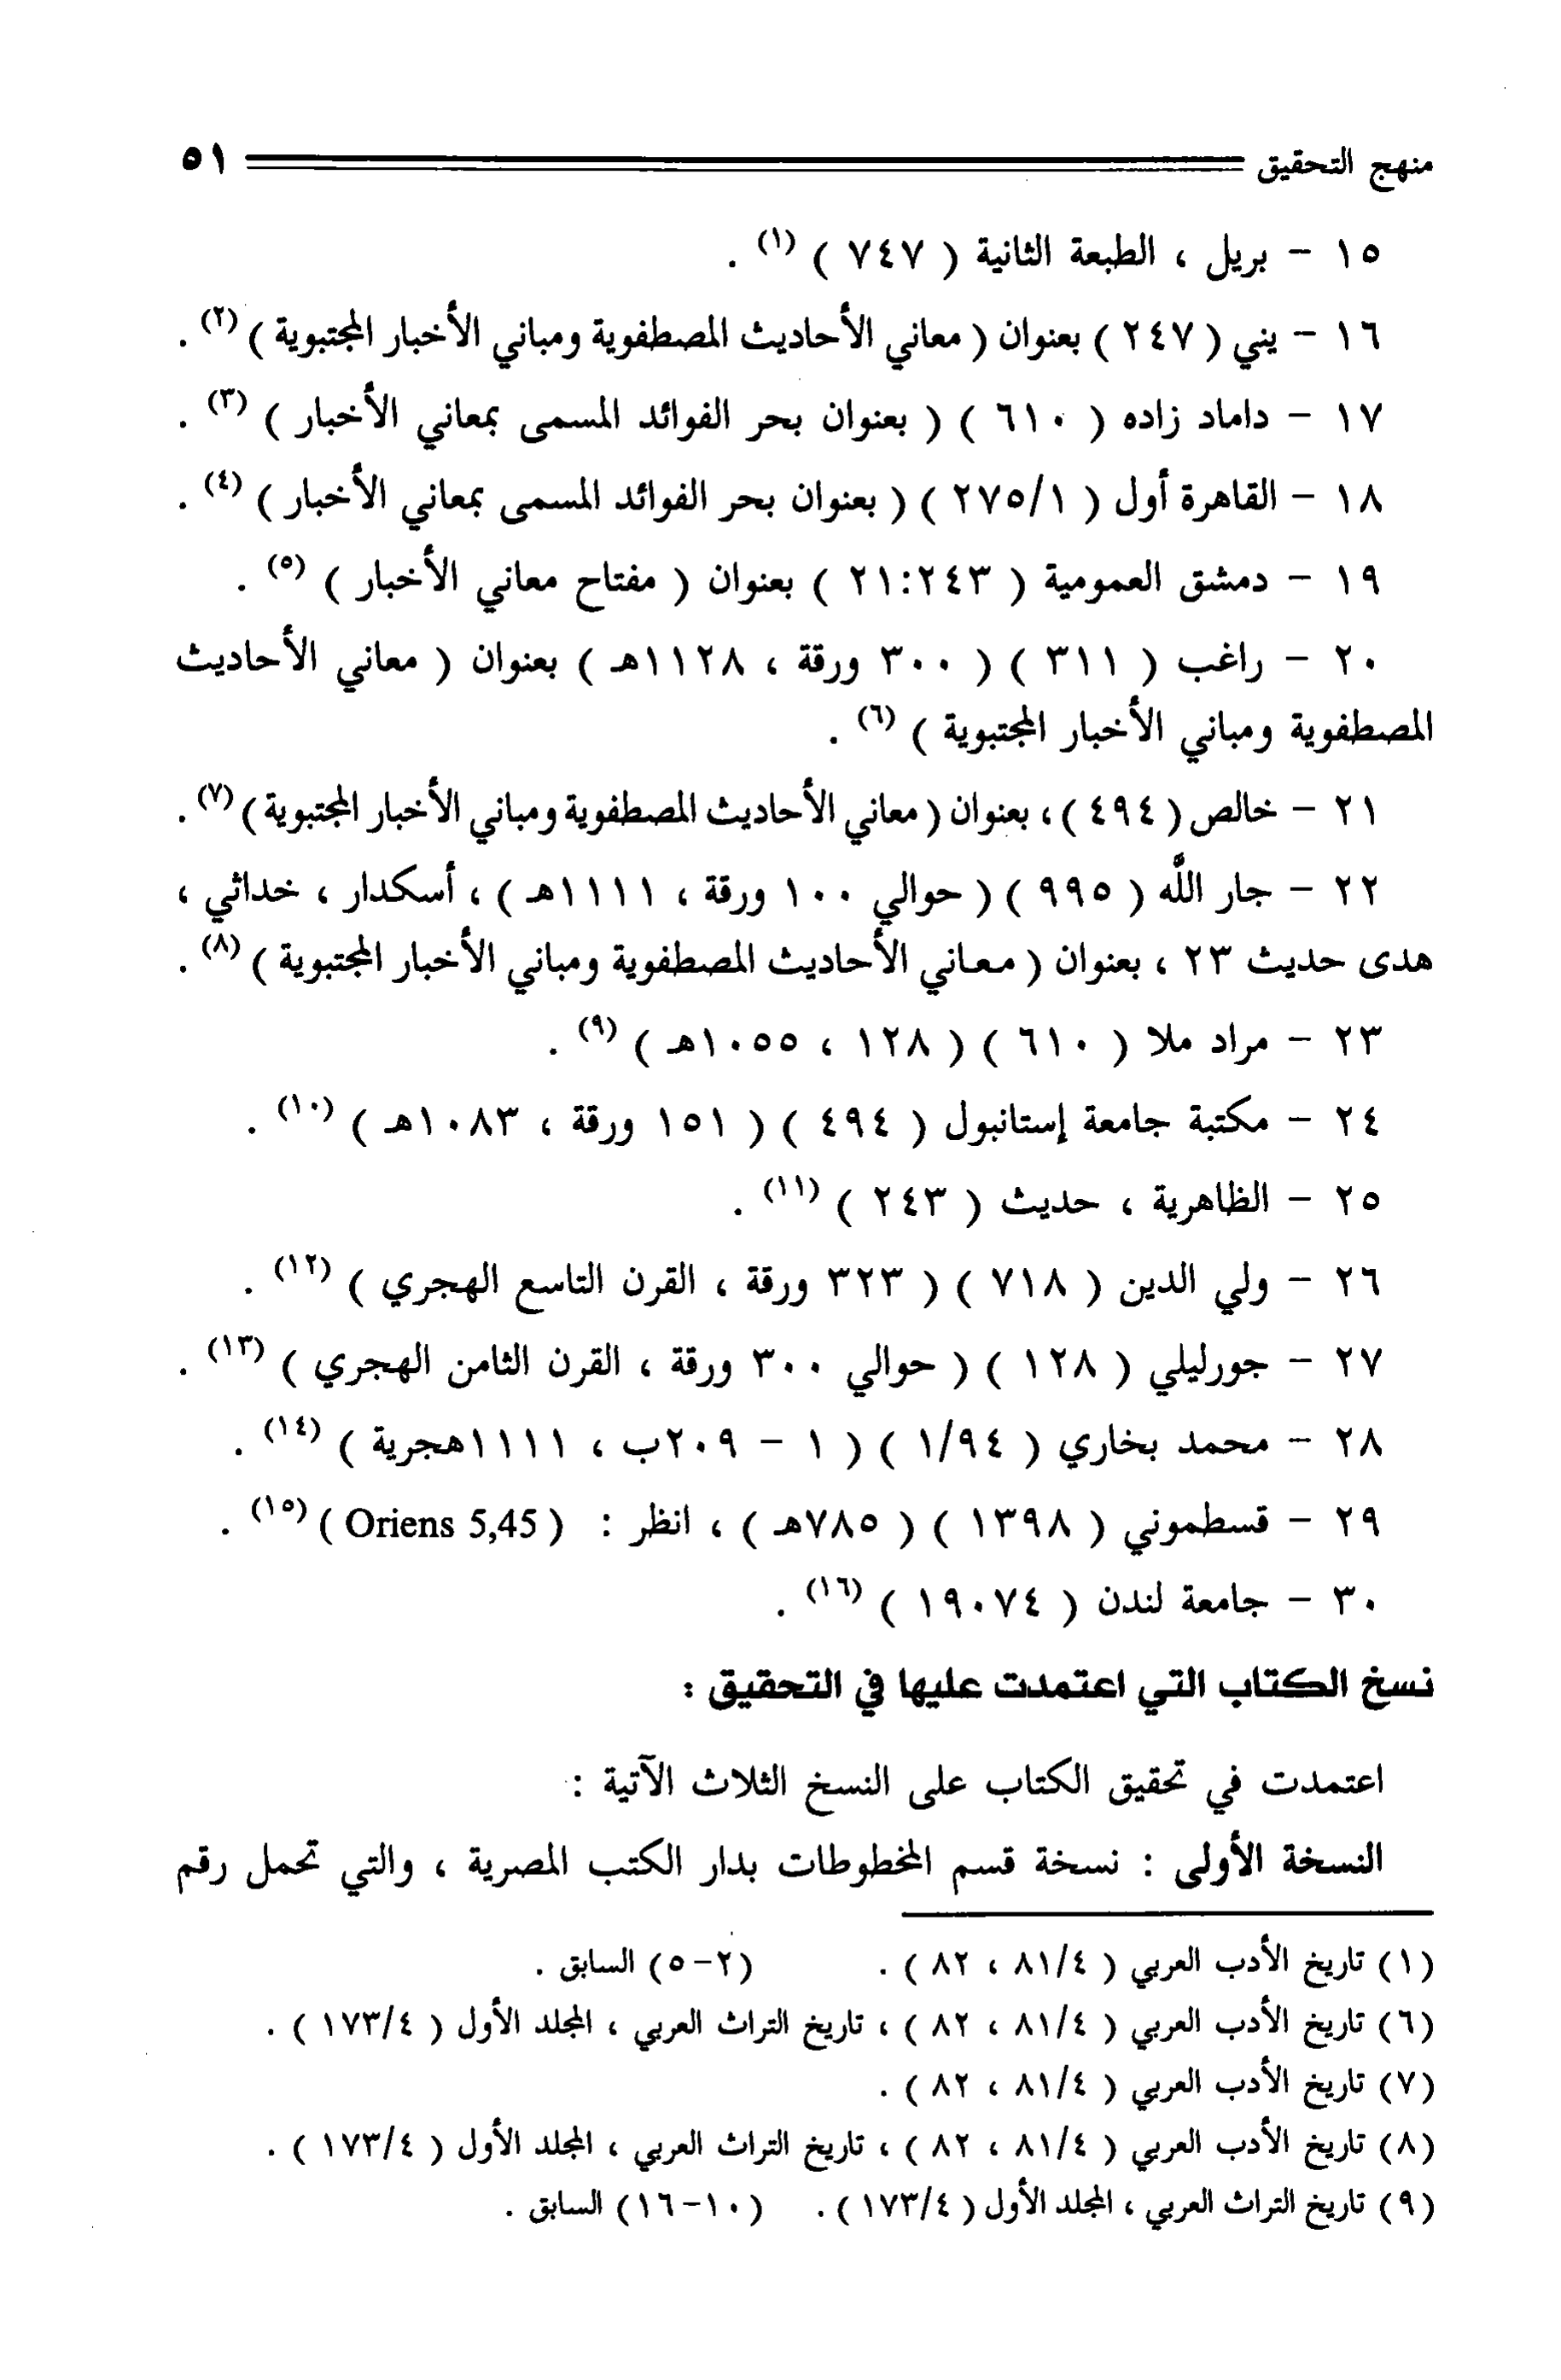 منهج التحقيق ٥١
١٥ - بريل ، الطبعة الثانية ( ٧٤٧ ) (١) .
١٦ - يني ( ٢٤٧ ) بعنوان ( معاني الأحاديث المصطفوية ومباني الأخبار المجتبوية ) (٢) .
١٧ - داماد زاده ( ٦١٠ ) ( بعنوان بحر الفوائد المسمى بمعاني الأخبار ) (٣) .
١٨ - القاهرة أول ( ٢٧٥/١ ) ( بعنوان بحر الفوائد المسمى بمعاني الأخبار ) (٤) .
١٩ - دمشق العمومية ( ٢١:٢٤٣ ) بعنوان ( مفتاح معاني الأخبار ) (٥) .
٢٠ - راغب ( ٣١١ ) ( ٣٠٠ ورقة ، ١١٢٨هـ ) بعنوان ( معاني الأحاديث
المصطفوية ومباني الأخبار المجتبوية ) (٦) .
٢١ - خالص ( ٤٩٤ ) ، بعنوان ( معاني الأحاديث المصطفوية ومباني الأخبار المجتبوية ) (٧) .
٢٢ - جار اللَّه ( ٩٩٥ ) ( حوالي ١٠٠ ورقة ، ١١١١هـ ) ، أسكدار ، خدائي ،
هدى حديث ٢٣ ، بعنوان ( معاني الأحاديث المصطفوية ومباني الأخبار المجتبوية ) (٨) .
٢٣ - مراد ملا ( ٦١٠ ) ( ١٢٨ ، ١٠٥٥هـ ) (٩) .
٢٤ - مكتبة جامعة إستانبول ( ٤٩٤ ) ( ١٥١ ورقة ، ١٠٨٣هـ ) (١٠) .
٢٥ - الظاهرية ، حديث ( ٢٤٣ ) (١١) .
٢٦ - ولي الدين ( ٧١٨ ) ( ٣٢٣ ورقة ، القرن التاسع الهجري ) (١٢) .
٢٧ - جورليلي ( ١٢٨ ) ( حوالي ٣٠٠ ورقة ، القرن الثامن الهجري ) (١٣) .
٢٨ - محمد بخاري ( ١/٩٤ ) ( ١ - ٢٠٩ب ، ١١١١هجرية ) (١٤) .
٢٩ - قسطموني ( ١٣٩٨ ) ( ٧٨٥هـ ) ، انظر : ( Oriens 5,45 ) (١٥) .
٣٠ - جامعة لندن ( ١٩٠٧٤ ) (١٦) .
نسخ الكتاب التي اعتمدت عليها في التحقيق :
اعتمدت في تحقيق الكتاب على النسخ الثلاث الآتية :
النسخة الأولى : نسخة قسم المخطوطات بدار الكتب المصرية ، والتي تحمل رقم
(١) تاريخ الأدب العربي ( ٨١/٤ ، ٨٢ ) . (٢-٥) السابق .
(٦) تاريخ الأدب العربي ( ٨١/٤ ، ٨٢ ) ، تاريخ التراث العربي ، المجلد الأول ( ١٧٣/٤ ) .
(٧) تاريخ الأدب العربي ( ٨١/٤ ، ٨٢ ) .
(٨) تاريخ الأدب العربي ( ٨١/٤ ، ٨٢ ) ، تاريخ التراث العربي ، المجلد الأول ( ١٧٣/٤ ) .
(٩) تاريخ التراث العربي ، المجلد الأول ( ١٧٣/٤ ) . (١٠-١٦) السابق .